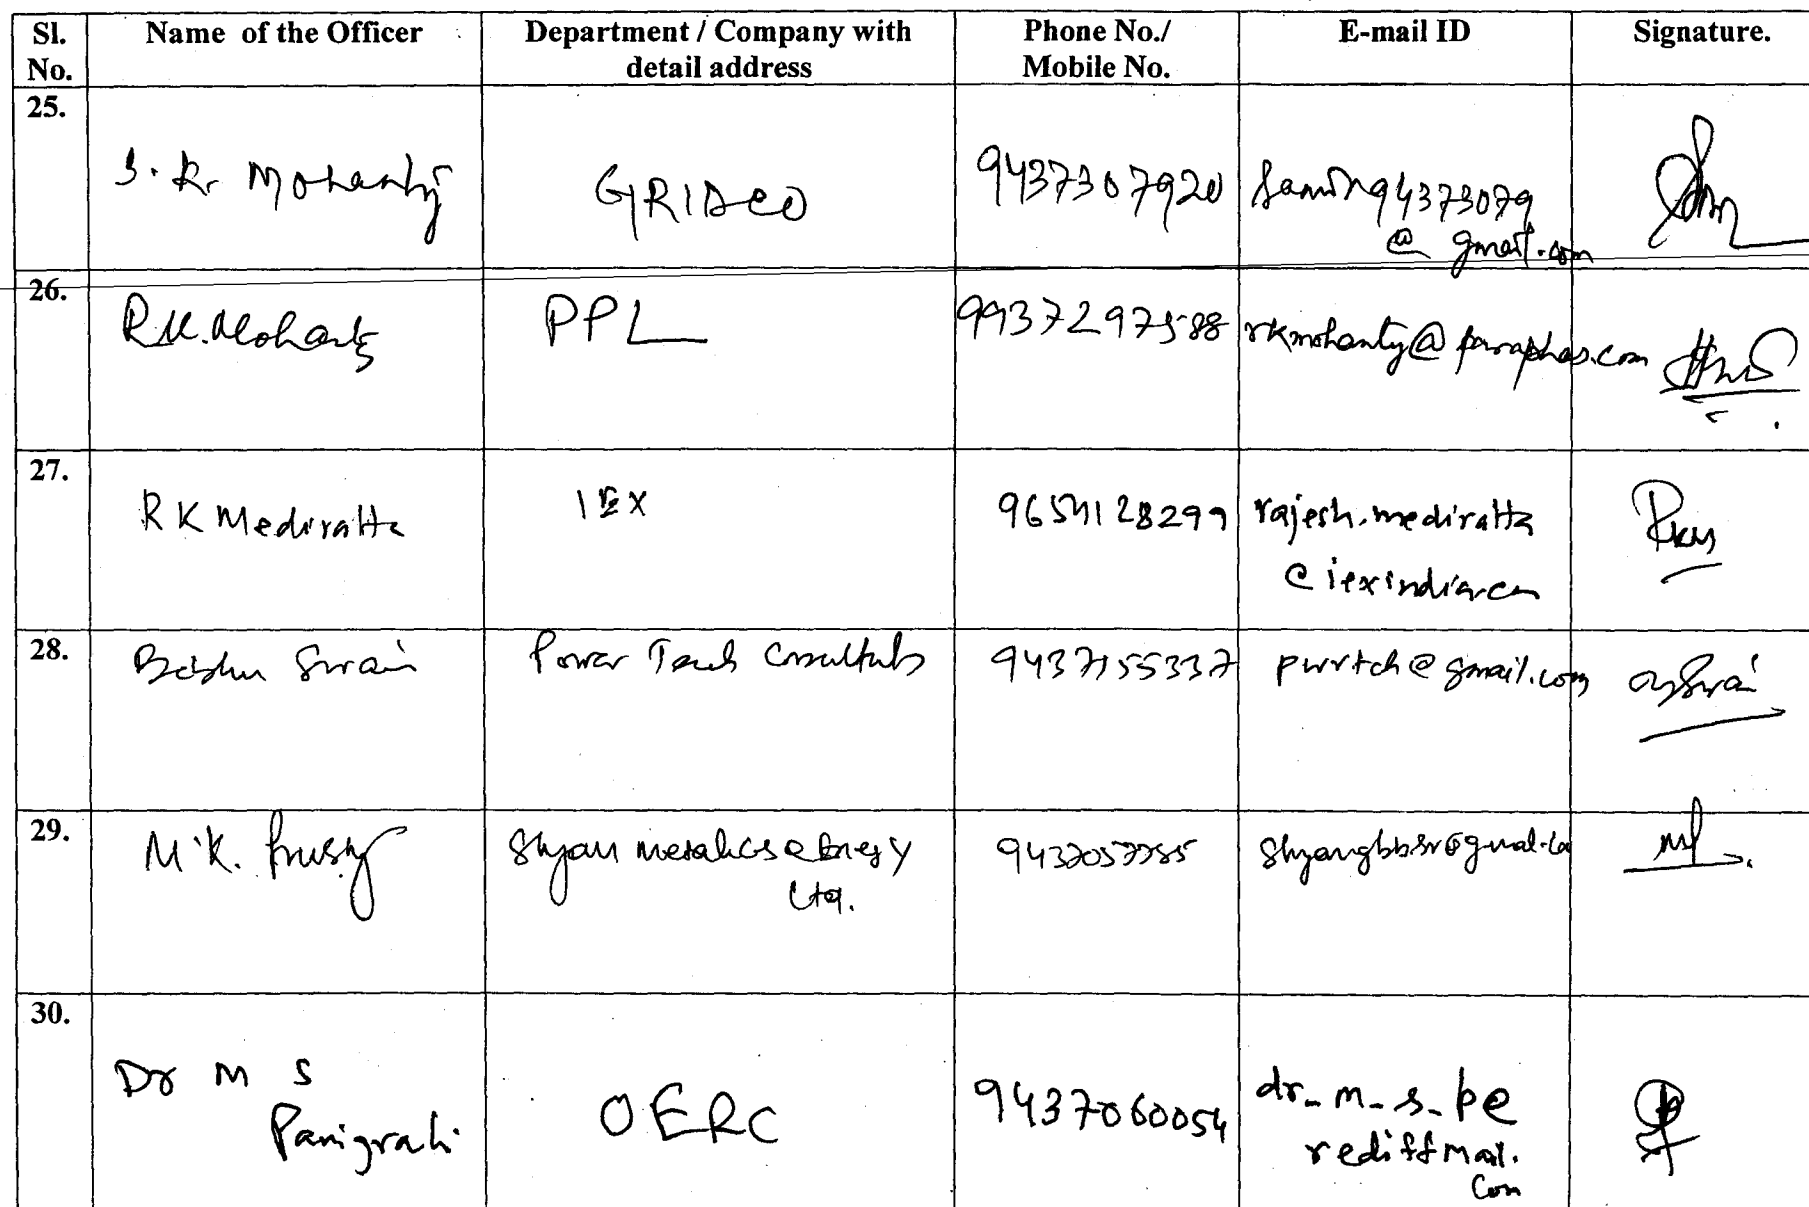 Sl. No. Name of the Officer Department / Company with detail address Phone No./ Mobile No. E-mail ID Signature.
25. S. K. Mohanty GRIDCO 9437307920
@ gmail.com
26. R.K. Mohanty PPL 9937297588 rkmohanty@paraphos.com
27. RK Mediratta IEX 9654128299 rajesh.mediratta
@iexindia.com
28. Bishu Swain Power Tech Consultants 9437155337 pwrtch@gmail.com
29. M.K. Prusty Shyam Metalics & Energy
Ltd.
30. Dr M S
Panigrahi OERC 9437060054 dr_m_s_p@
rediffmail.
com